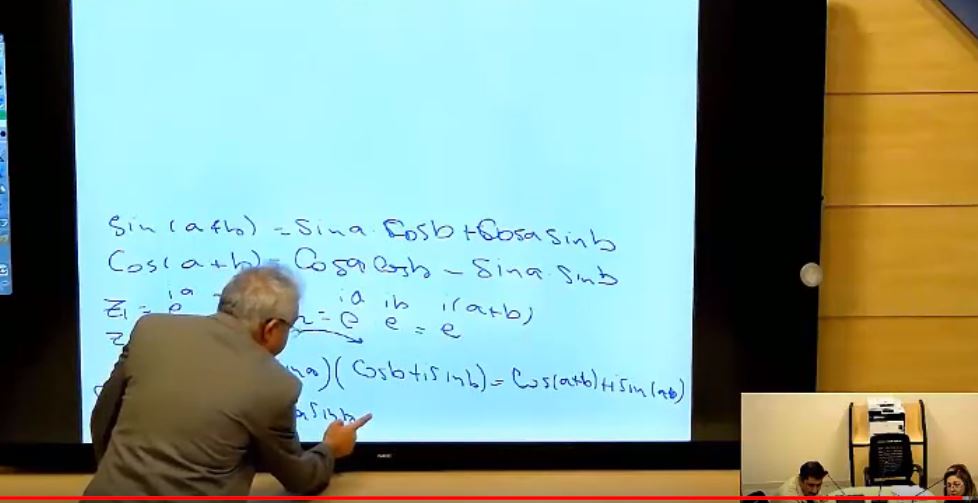 Sin(a+b) = Sina. Cosb + Cosa Sinb
Cos(a+b) = Cosa Cosb - Sina. Sinb
Z1 = e^ia = e^ia e^ib = e^i(a+b)
)(Cosb + iSinb) = Cos(a+b) + iSin(ab)
Sinb